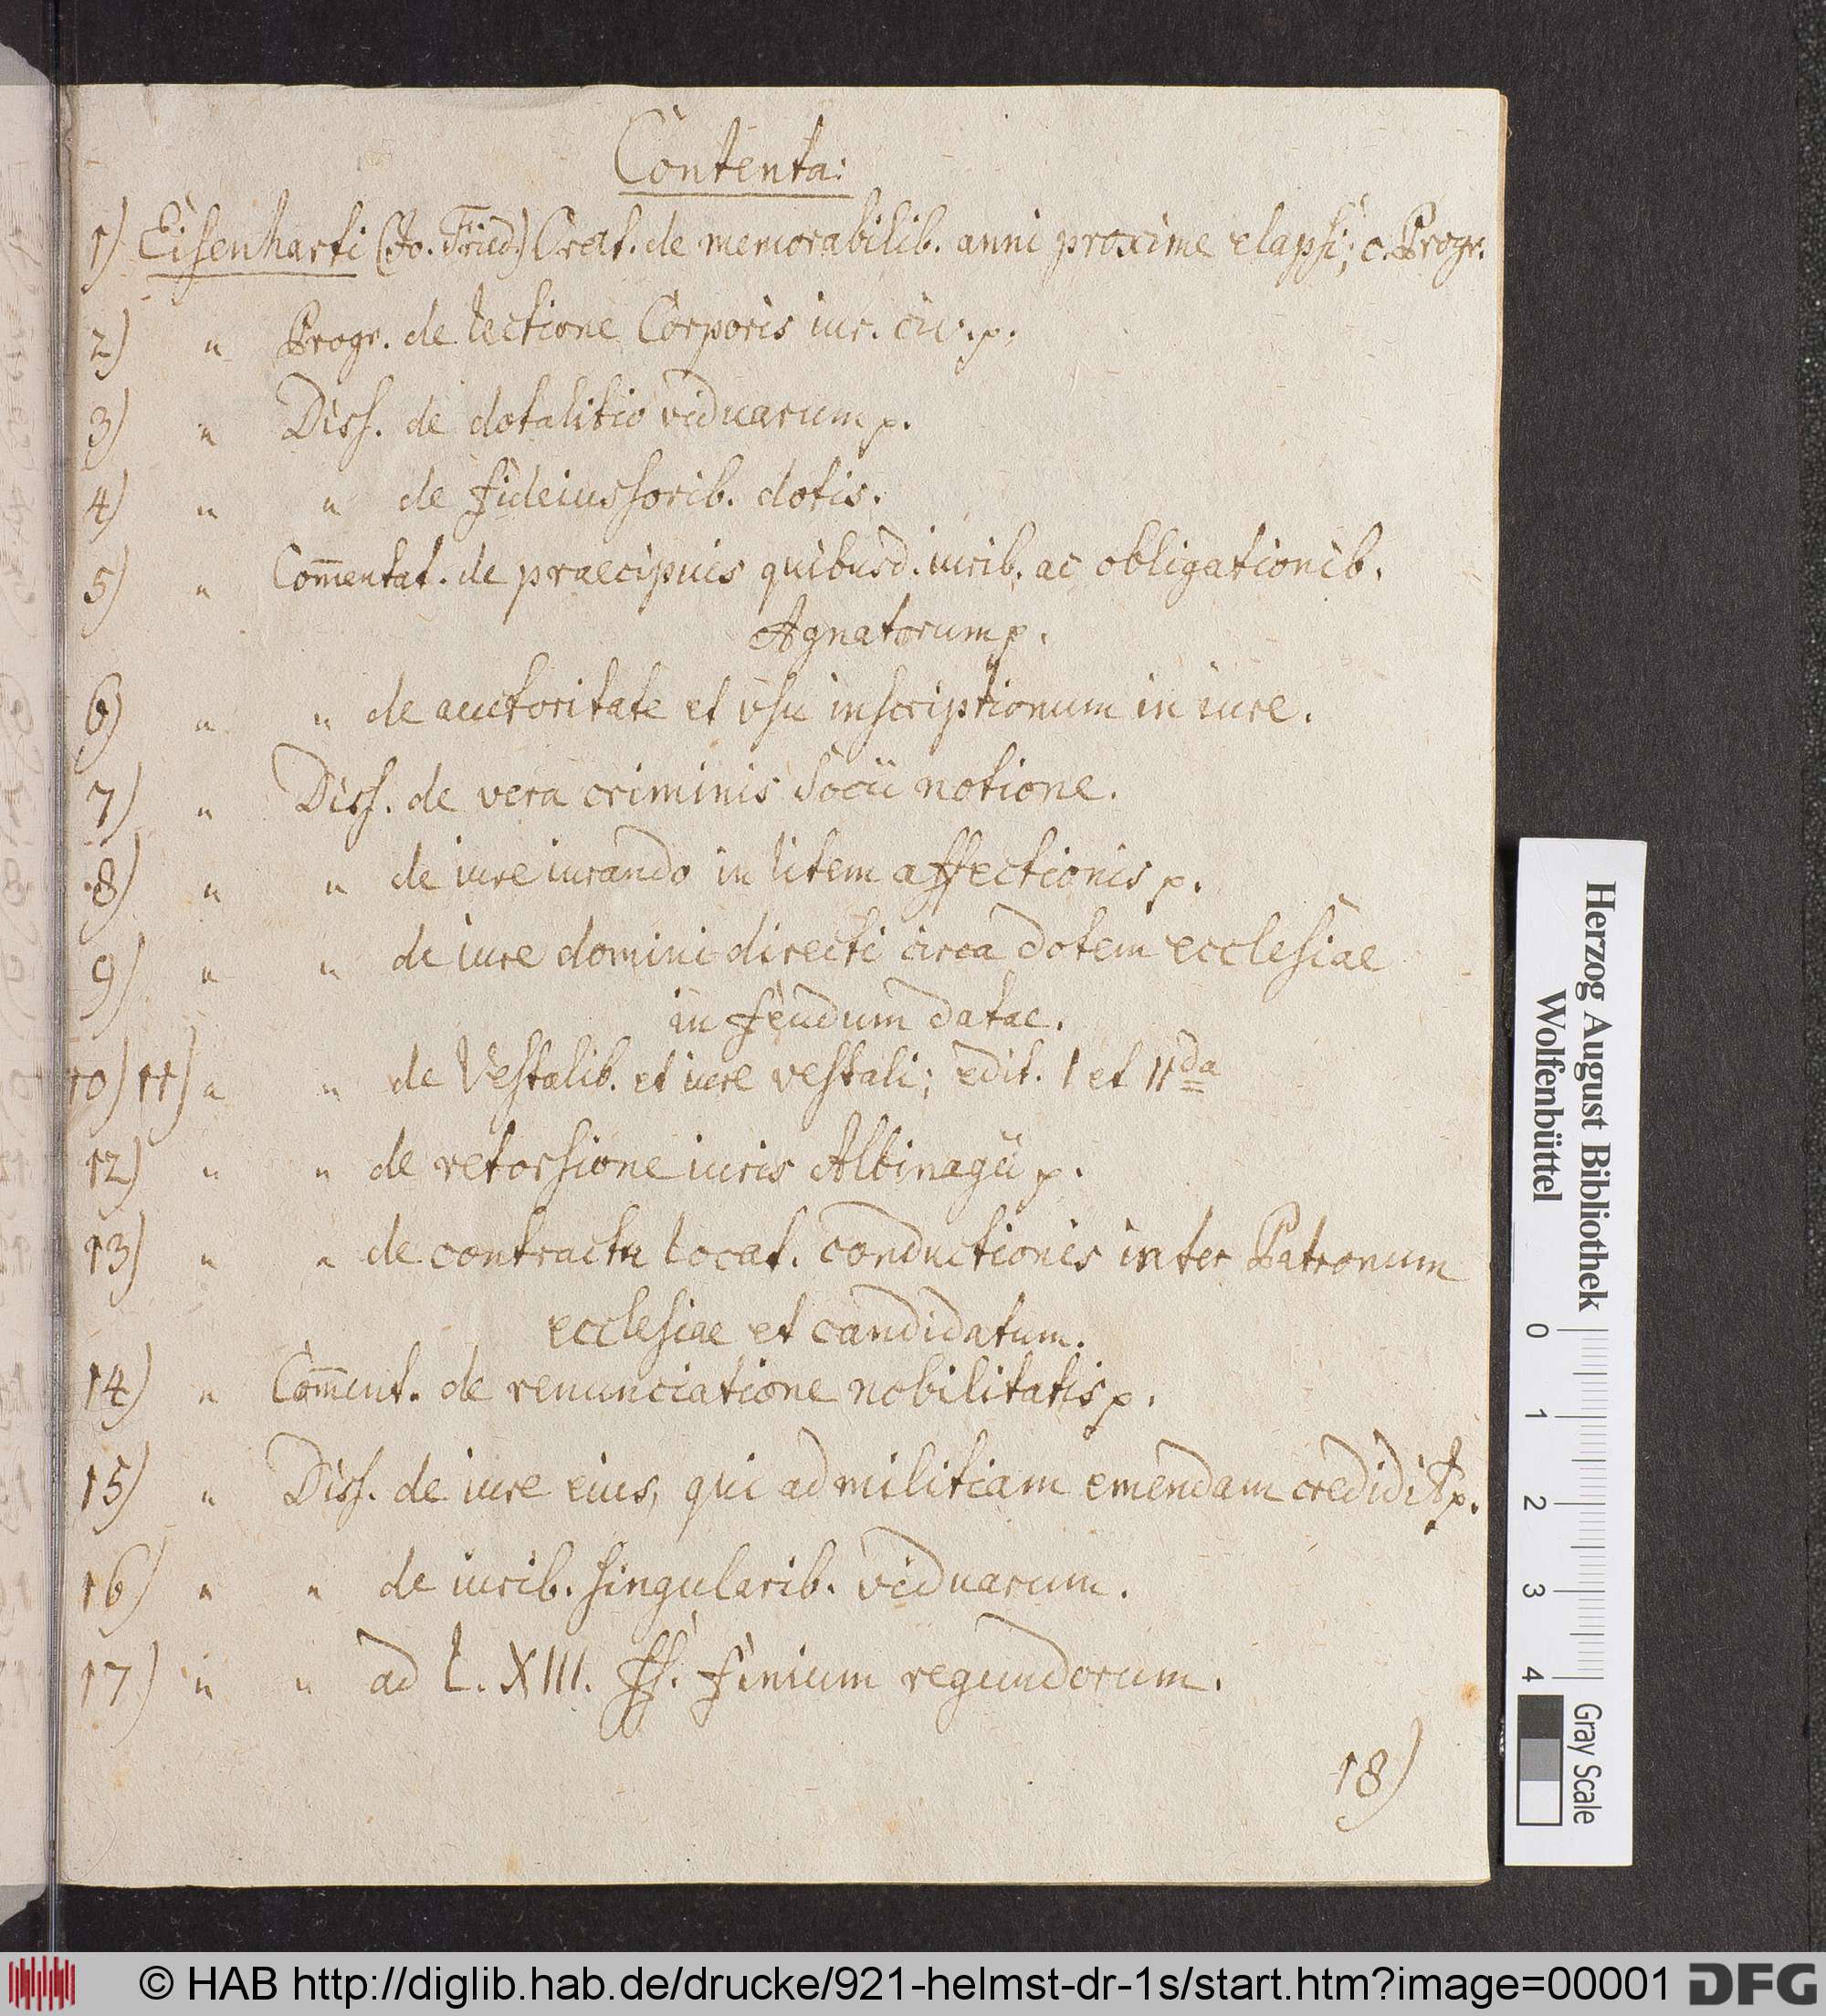 Contenta:
1) Eisenharti (Jo. Fried.) Orat. de memorabilib. anni proxime elapsi; c. Progr.
2) " Progr. de lectione Corporis iur. civ. p.
3) " Diss. de dotalitio viduarum p.
4) " " de fideiussorib. dotis.
5) " Com̄entat. de praecipuis quibusd. iurib. ac obligationib.
Agnatorum p.
6) " " de auctoritate et vsu inscriptionum in iure.
7) " Diss. de vera criminis Socii notione.
8) " " de iure iurando in litem affectionis p.
9) " " de iure domini directi circa dotem ecclesiae
in feudum datae.
10) 11) " " de Vestalib. et iure vestali; edit. I et IIda
12) " " de retorsione iuris Albinagii p.
13) " " de contractu locat. conductionis inter Patronum
ecclesiae et candidatum.
14) " Com̄ent. de renunciatione nobilitatis p.
15) " Diss. de iure eius, qui ad militiam emendam credidit p.
16) " " de iurib. singularib. viduarum.
17) " " ad L. XIII. ff. finium regundorum.
18)
Herzog August Bibliothek
Wolfenbüttel
0 1 2 3 4
Gray Scale
© HAB http://diglib.hab.de/drucke/921-helmst-dr-1s/start.htm?image=00001
DFG